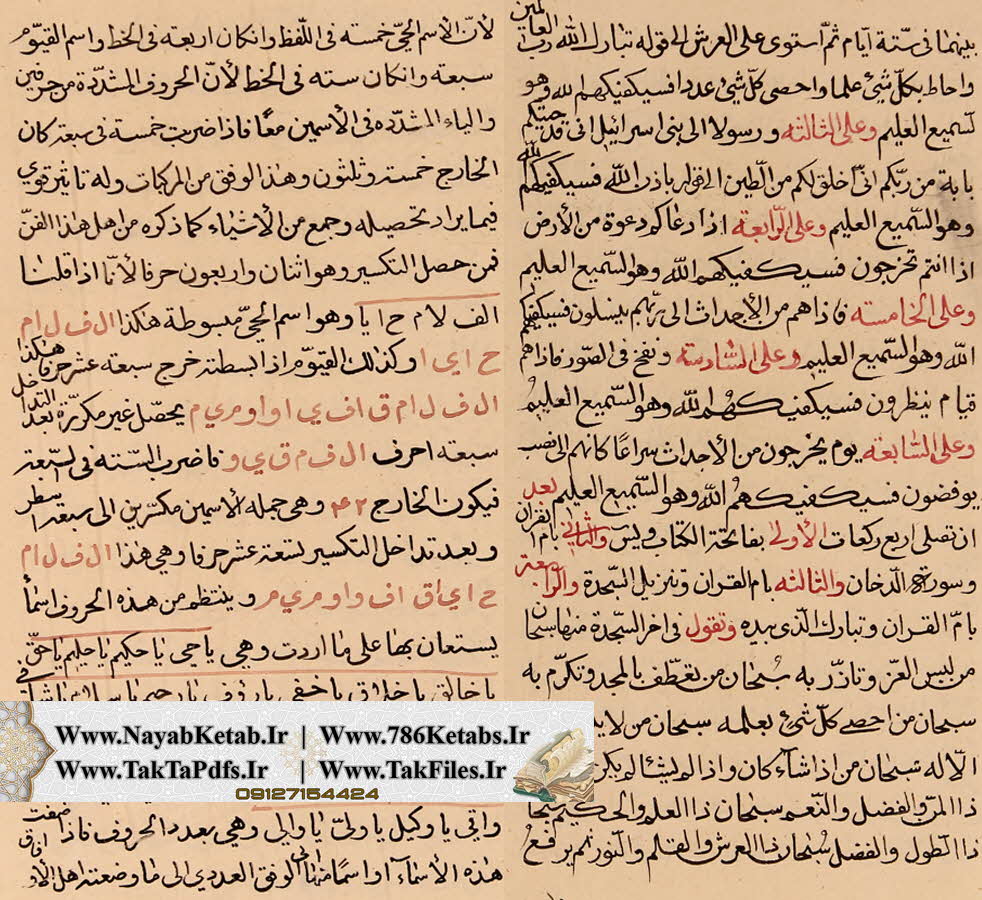 بينهما في ستة أيام ثم استوى على العرش الى قوله تبارك الله رب العالمين
واحاط بكل شيء علما واحصى كل شيء عددا فسيكفيكهم الله وهو
السميع العليم وعلى الثالثه ورسولا الى بني اسرائيل انى قد جيتكم
باية من ربكم انى اخلق لكم من الطين الى قوله باذن الله فسيكفيكهم الله
وهو السميع العليم وعلى الرابعة اذا دعاكم دعوة من الأرض
اذا انتم تخرجون فسيكفيكهم الله وهو السميع العليم
وعلى الخامسة فاذا هم من الأجداث الى ربهم ينسلون فسيكفيكهم
الله وهو السميع العليم وعلى السادسة ونفخ في الصور فاذا هم
قيام ينظرون فسيكفيكهم الله وهو السميع العليم
وعلى السابعة يوم يخرجون من الأجداث سراعا كانهم الى نصب
يوفضون فسيكفيكهم الله وهو السميع العليم بعد
ان تصلى اربع ركعات الأولى بفاتحة الكتاب ويس والثاني بام القران
وسورة الدخان والثالثه بام القران وتنزيل السجدة والرابعة
بام القران وتبارك الذي بيده وتقول في اخر السجدة منها سبحان
من لبس العز وتازر به سبحان من تعطف بالمجد وتكرم به
سبحان من احصى كل شيء بعلمه سبحان من لا
الا له سبحان من اذا شاء كان واذا لم يشا لم يكن
ذا المن والفضل والنعم سبحان ذا العلم والحكيم سبحان
ذا الطول والفضل سبحان ذا العرش والقلم والنور ثم يرفع
لأن الأسم الحي خمسة في اللفظ وانكان اربعه في الخط واسم القيوم
سبعة وانكان سته في الخط لأن الحروف المشددة من حرفين
والياء المشدده في الأسمين معا فاذا ضربت خمسة في سبعة كان
الخارج خمسة وثلثون وهذا الوفق من المركبات وله تاثير قوي
فيما يراد تحصيله وجمع من الأشياء كما ذكره من اهل هذا الفن
فمن حصل التكسير وهو اثنان واربعون حرفا لأنا اذا قلنا
الف لام حا يا وهو اسم الحي مبسوطة هكذا ا ل ف ل ا م
ح ا ي ا وكذلك القيوم اذا بسطته خرج سبعه عشر حرفا هكذا
ا ل ف ل ا م ق ا ف ي ا و ا و م ي م يحصل غير مكررة بعد التداخل
سبعه احرف ا ل ف م ق ي و فاضرب السته في السبعة
فيكون الخارج ۴۲ وهي جملة الأسمين مكسرين الى سبعة اسطر
وبعد تداخل التكسير لستعة عشر حرفا وهي هذا ا ل ف ل ا م
ح ا ي ا ق ا ف و ا و م ي م وينتظم من هذه الحروف اسما
يستعان بها على ما اردت وهي يا حي يا حكيم يا حليم يا حق
يا خالق يا خلاق يا خفى يا رؤف يا رحيم يا سلام يا شافي
Www.NayabKetab.Ir | Www.786Ketabs.Ir
Www.TakTaPdfs.Ir | Www.TakFiles.Ir
09127154424
واتى يا وكيل يا ولي يا والي وهي بعدد الحروف فاذا
هذه الأسماء او اسما منها الى الوفق العددي الى ما وضعته اهل